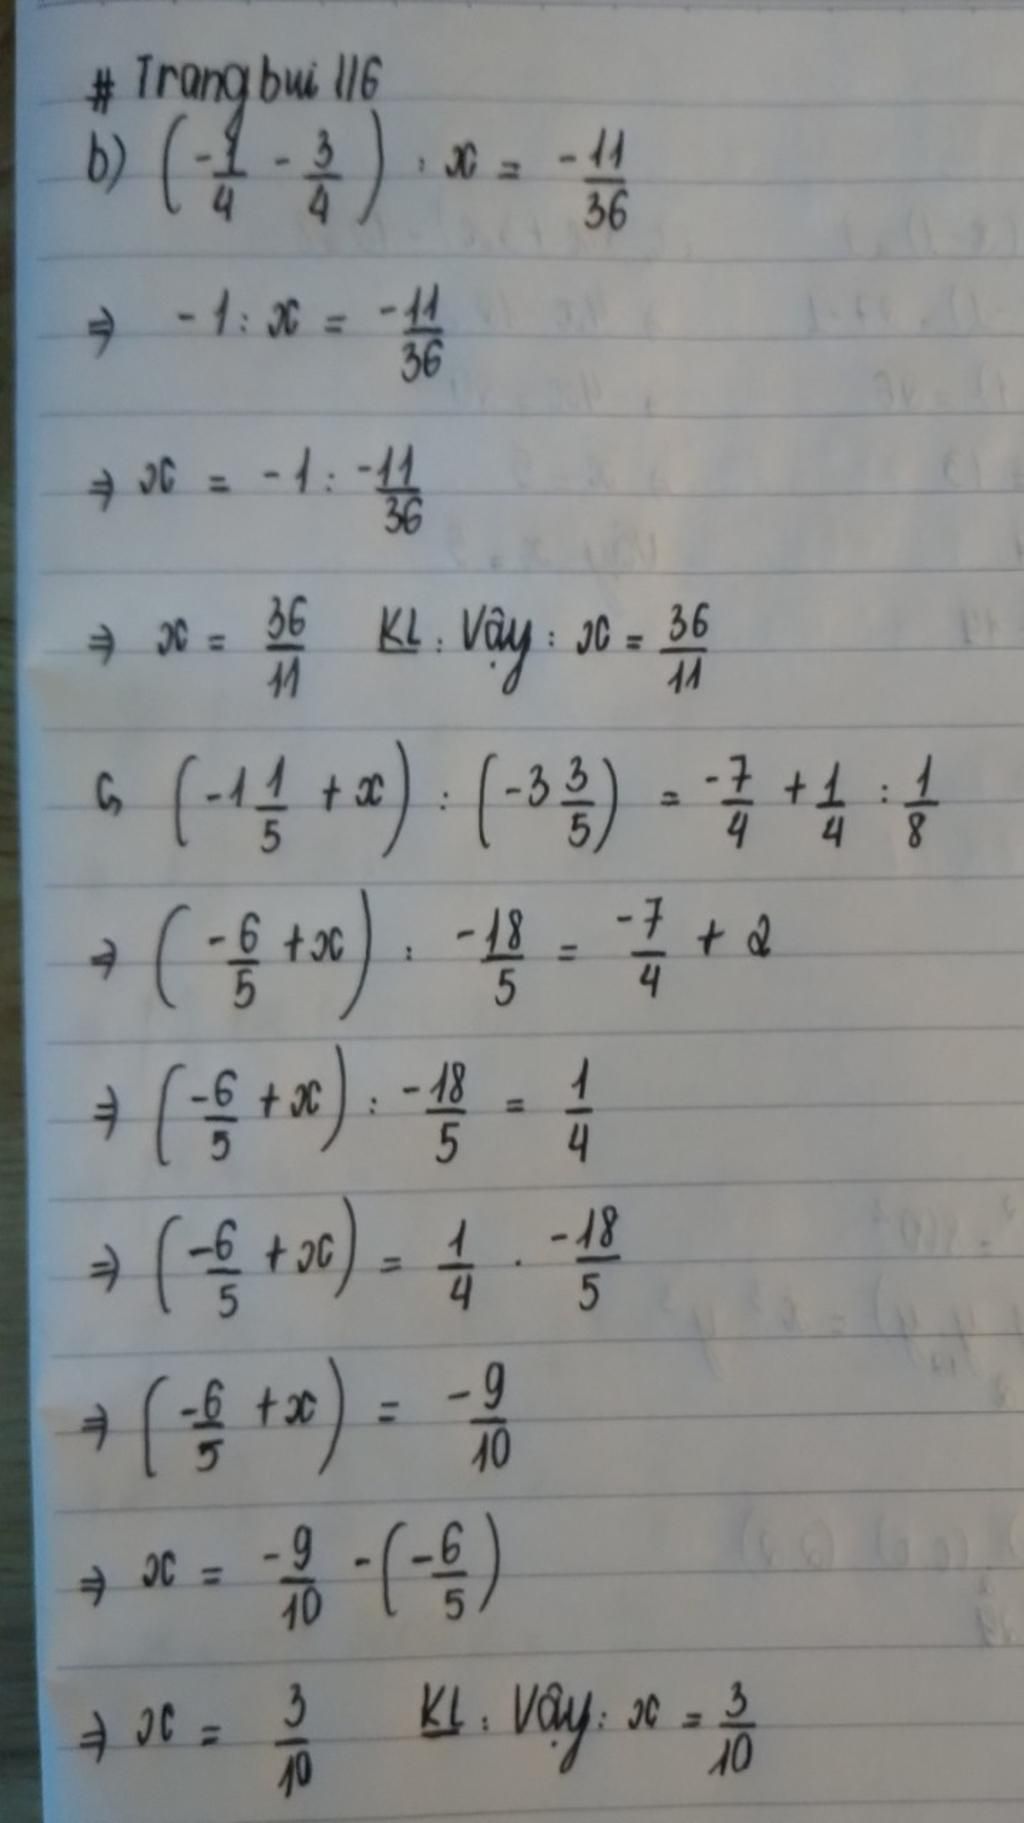 # Trangbui 116
b) (-1/4 - 3/4) : x = -11/36
⇒ -1 : x = -11/36
⇒ x = -1 : -11/36
⇒ x = 36/11 KL : Vậy : x = 36/11
c, (-1 1/5 + x) : (-3 3/5) = -7/4 + 1/4 : 1/8
⇒ (-6/5 + x) : -18/5 = -7/4 + 2
⇒ (-6/5 + x) : -18/5 = 1/4
⇒ (-6/5 + x) = 1/4 . -18/5
⇒ (-6/5 + x) = -9/10
⇒ x = -9/10 - (-6/5)
⇒ x = 3/10 KL : Vậy : x = 3/10